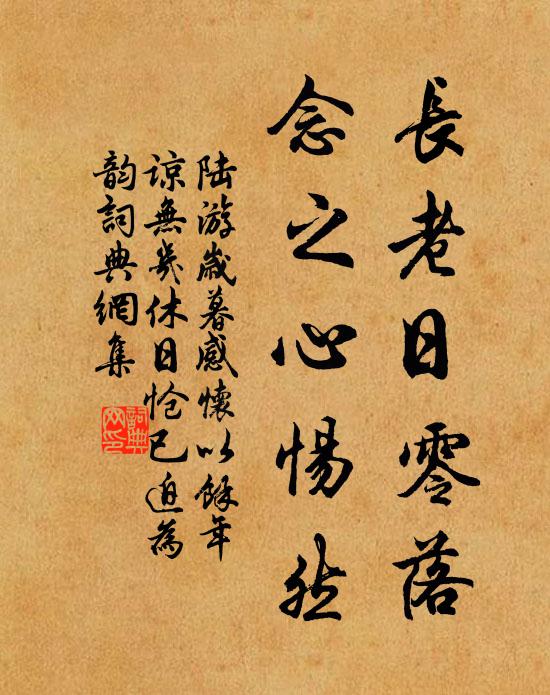 長老日零落
念之心惕然
陸游歲暮感懷以餘年
諒無幾休日愴已迫為
韵詞典網集
詞典网印